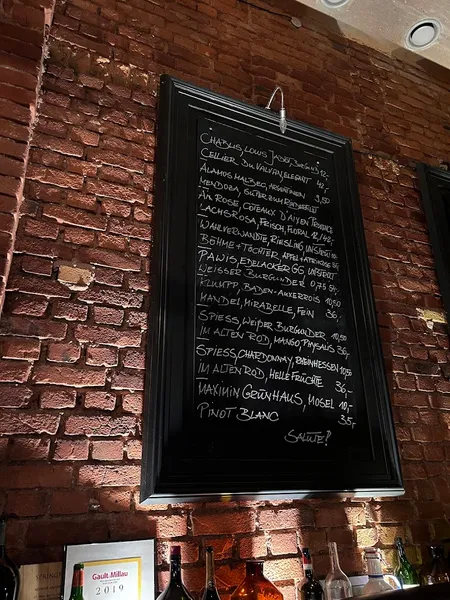 CHABLIS, LOUIS JADOT, BURGUND 12,-
CELLIER DU VALVAN, ELEGANT 42,-
ALAMOS MALBEC, ARGENTINIEN 9,50
MENDOZA, GUTER ZUM RINDERFILET
AIX ROSE, COTEAUX D'AIX EN PROVENCE
LACHSROSA, FRISCH, FLORAL 12,-/42,-
WAHLVERWANDTE, RIESLING UNSORTIERT
BÖHME + TÖCHTER, APFEL + APRIKOSE
PAWIS, EDELACKER GG UNSTRUT
WEISSER BURGUNDER 0,75 59,-
KLUMPP, BADEN - AUXERROIS 10,50
MANDEL, MIRABELLE, FEIN 36,-
SPIESS, WEIßER BURGUNDER 10,50
IM ALTEN ROD, MANGO, PHYSALIS 36,-
SPIESS, CHARDONNAY, RHEINHESSEN 10,50
IM ALTEN ROD, HELLE FRÜCHTE 36,-
MAXIMIN GRÜNHAUS, MOSEL 10,-
PINOT BLANC 35,-
SALUTE!
Gault&Millau
2019